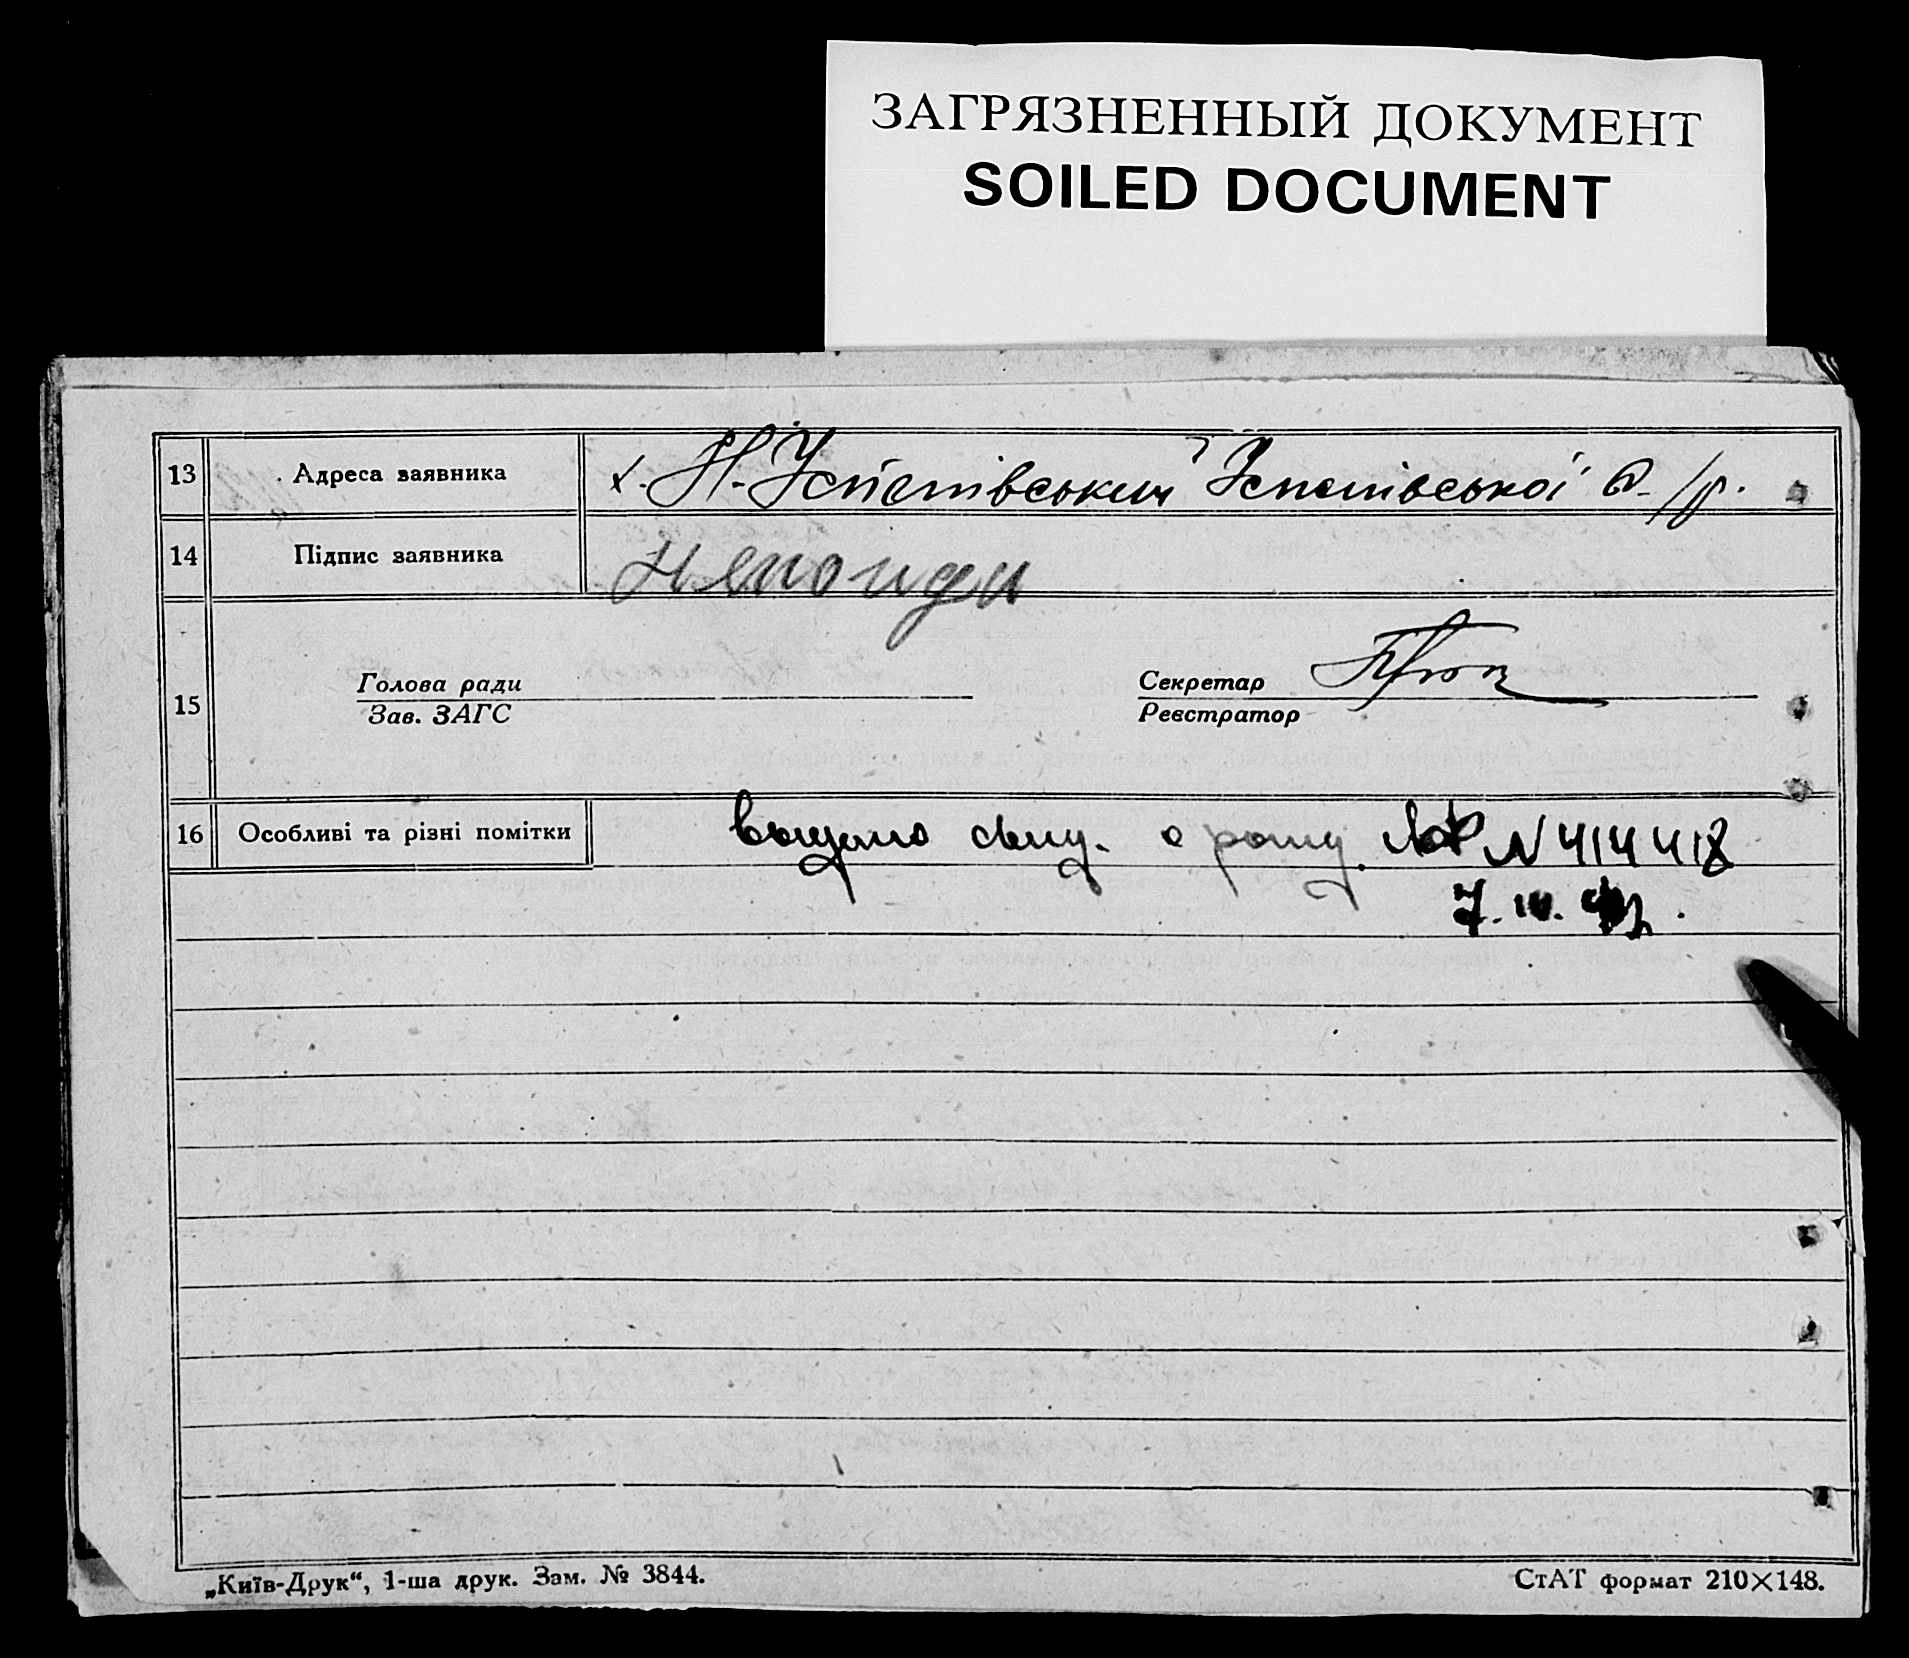 ЗАГРЯЗНЕННЫЙ ДОКУМЕНТ
SOILED DOCUMENT
13 Адреса заявника х. Н-Успенівський Успенівської с/р.
14 Підпис заявника
Голова ради Секретар
15
Зав. ЗАГС Реєстратор
16 Особливі та різні помітки выдано свид. о рожд. N 414418
„Київ-Друк“, 1-ша друк. Зам. № 3844. СтАТ формат 210×148.